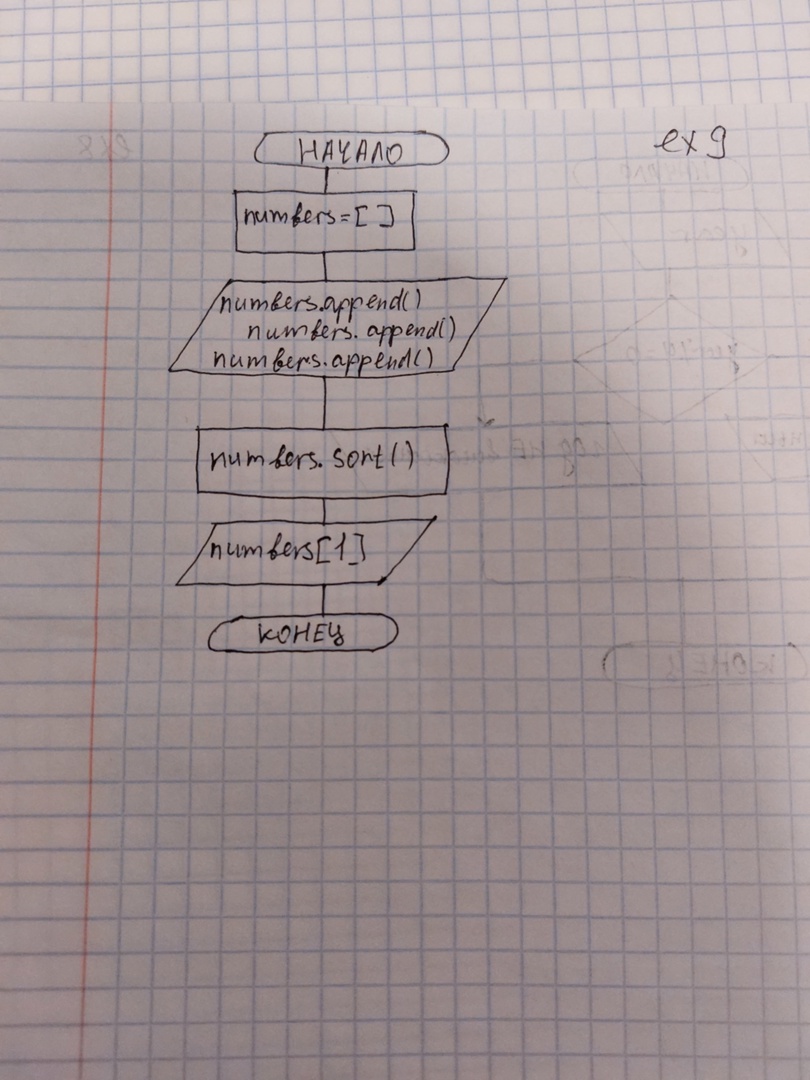 ex 9
НАЧАЛО
numbers=[ ]
numbers.append()
numbers.append()
numbers.append()
numbers.sort()
numbers[1]
КОНЕЦ